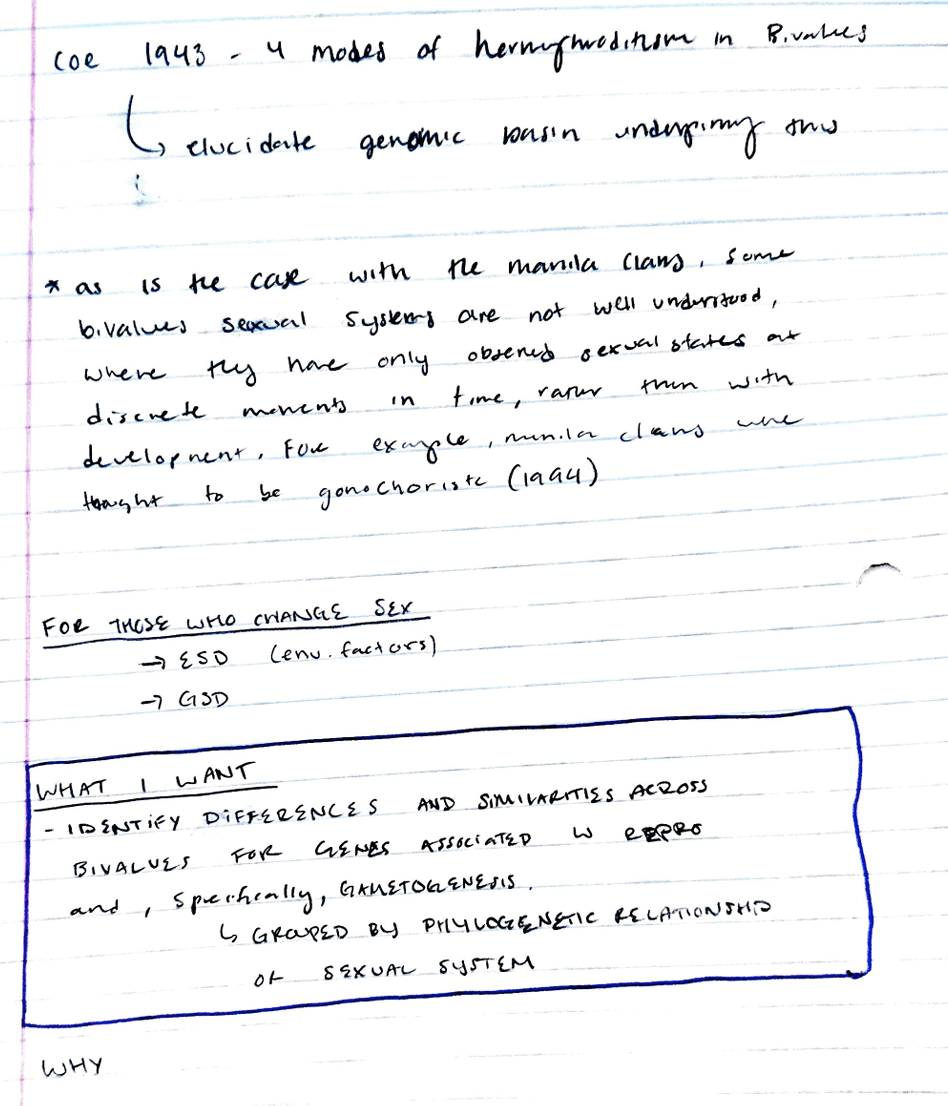 Coe 1943 - 4 modes of hermaphroditism in Bivalves
↳ elucidate genomic basin underpinning this
* as is the case with the manila clams, some
bivalves sexual systems are not well understood,
where they have only observed sexual states at
discrete moments in time, rather then with
development. For example, manila clams were
thought to be gonochoristc (1994)
FOR THOSE WHO CHANGE SEX
→ ESD (env. factors)
→ GSD
WHAT I WANT
- IDENTIFY DIFFERENCES AND SIMILARITIES ACROSS
BIVALVES FOR GENES ASSOCIATED W REPRO
and, specifically, GAMETOGENESIS.
↳ GROUPED BY PHYLOGENETIC RELATIONSHIP
OF SEXUAL SYSTEM
WHY